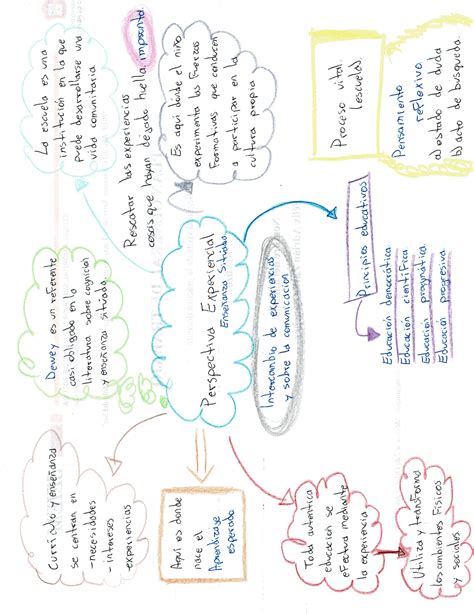 La escuela es una
institución en la que
puede desarrollarse una
vida comunitaria
Rescatar las experiencias
cosas que hayan dejado huella, impronta.
Es aquí donde el niño
experimenta las fuerzas
Formativas que conducen
a participar en la
cultura propia
Proceso vital.
(escuela).
Pensamiento
reflexivo
a) estado de duda
b) acto de busqueda.
Dewey es un referente
casi obligado en la
literatura sobre cognición
y enseñanza situada.
Perspectiva Experiencial
Enseñanza Situada
Intercambio de experiencias
y sobre la comunicación
Principios educativos
Educación democrática
Educación científica
Educación pragmática
Educación progresiva
Currículo y enseñanza
se centran en
-necesidades
-intereses
-experiencias
Aquí es donde
nace el
Aprendizaje
esperado
Toda autentica
educación se
efectua mediante
la experiencia
Utiliza y transforma
los ambientes físicos
y sociales